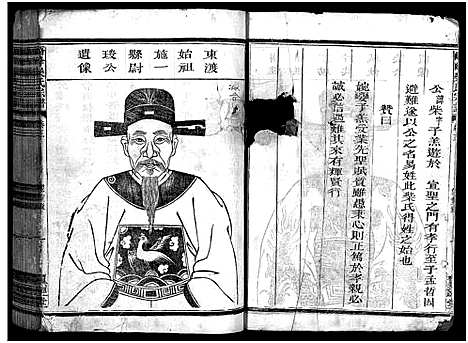 公諱柴字子羔遊於 宣聖之門有孝行至子孟哲因
避難遂以公之名易姓此柴氏得姓之始也
贊曰
婉變子羔受業先聖賦質雖愚秉心則正篤於孝親必
誠必信遇難其來有輝賢行
東渡
始祖
施一
縣尉
琁公
遺像